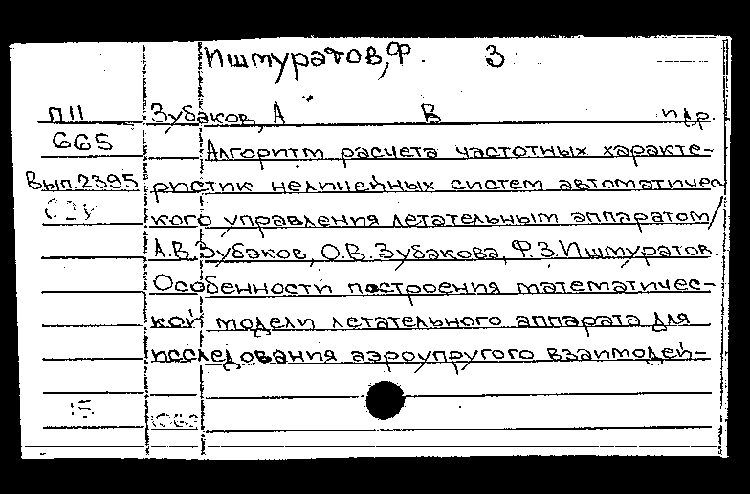 Ишмуратов, Ф. З
П11 Зубаков, А В и др.
665 Алгоритм расчета частотных характе-
Вып.2395 ристик нелинейных систем автоматичес
кого управления летательным аппаратом/
А.В.Зубаков, О.В.Зубакова, Ф.З.Ишмуратов
Особенности построения математичес-
кой модели летательного аппарата для
исследования аэроупругого взаимодей-
15